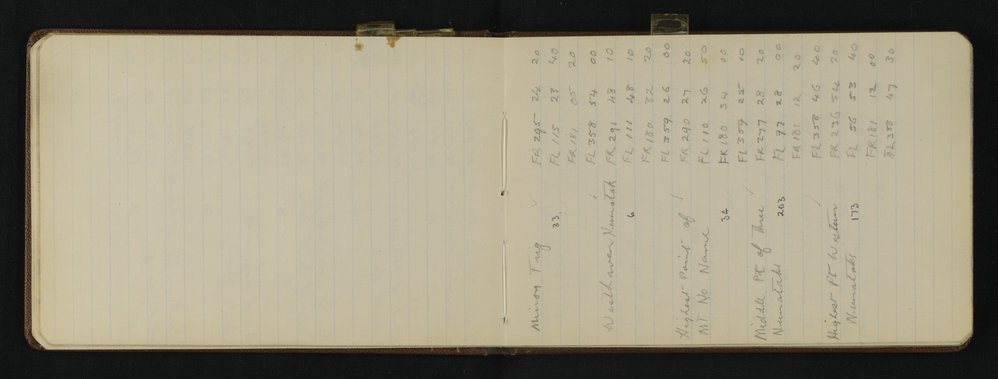 Minory Trig FR 295 24 20
33. FL 115 23 40
FR 181 05 20
FL 358 54 00
Westhaven Nunatak FR 291 48 10
6 FL 111 48 10
FR 180 32 20
FL 359 26 00
Highest Point of FR 290 27 20
MT No Name FL 110 26 50
34 FR 180 34 00
FL 359 25 00
Middle Pt of Three FR 277 28 20
Nunataks 203 FL 97 28 00
FR 181 12 20
FL 358 46 40
Highest Pt Western FR 236 54 20
Nunataks 173 FL 56 53 40
FR 181 12 00
FL 358 47 30